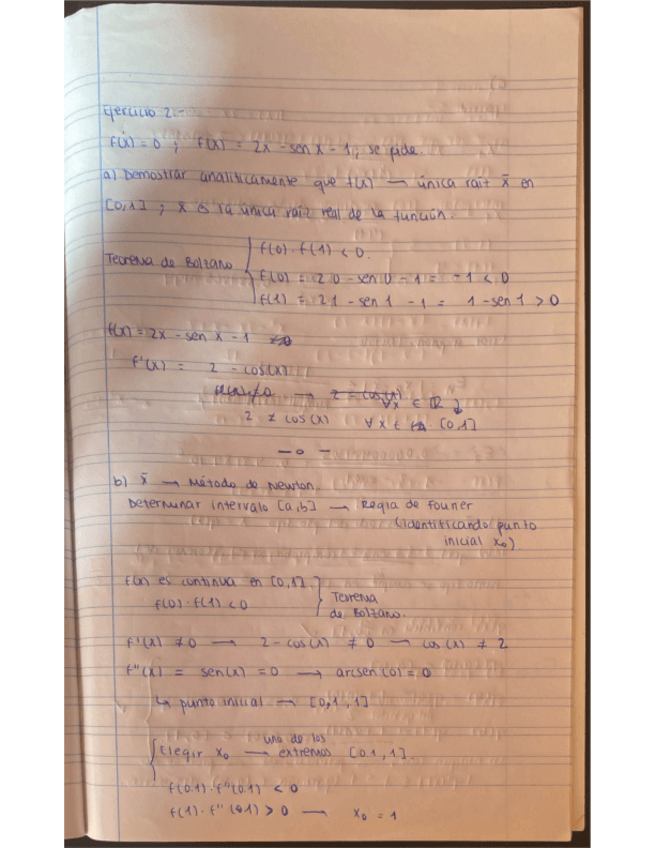 Ejercicio 2.-
f(x) = 0 ; f(x) = 2x - sen x - 1 ; se pide.
a) Demostrar analíticamente que f(x) → única raíz x̄ en
[0,1] ; x̄ es la única raíz real de la función.
Teorema de Bolzano { f(0) · f(1) < 0.
f(0) = 2·0 - sen 0 - 1 = -1 < 0
f(1) = 2·1 - sen 1 - 1 = 1 - sen 1 > 0
f(x) = 2x - sen x - 1
f'(x) = 2 - cos(x)
→ 2 = cos(x)
∀x ∈ ℝ
2 ≠ cos(x) ∀x ∈ [0,1]
— o —
b) x̄ → Método de Newton.
Determinar intervalo [a,b] → Regla de Fourier
(identificando punto
inicial x₀).
f(x) es continua en [0,1].
f(0) · f(1) < 0
} Teorema
de Bolzano.
f'(x) ≠ 0 → 2 - cos(x) ≠ 0 → cos(x) ≠ 2
f''(x) = sen(x) = 0 → arcsen(0) = 0
↳ punto inicial → [0,1 , 1]
{ Elegir x₀ → uno de los extremos [0.1 , 1].
f(0.1) · f''(0.1) < 0
f(1) · f''(0.1) > 0 → x₀ = 1